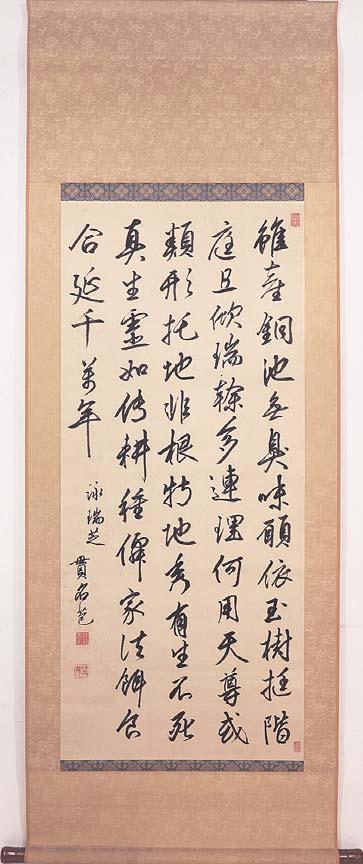 雖產銅池無臭味願依玉樹挺階
庭且欣瑞榦多連理何用天尊或
類形托地非根特地秀有生不死
真生靈如傳耕種僊家法餌食
合延千萬年
詠瑞芝
貫名苞